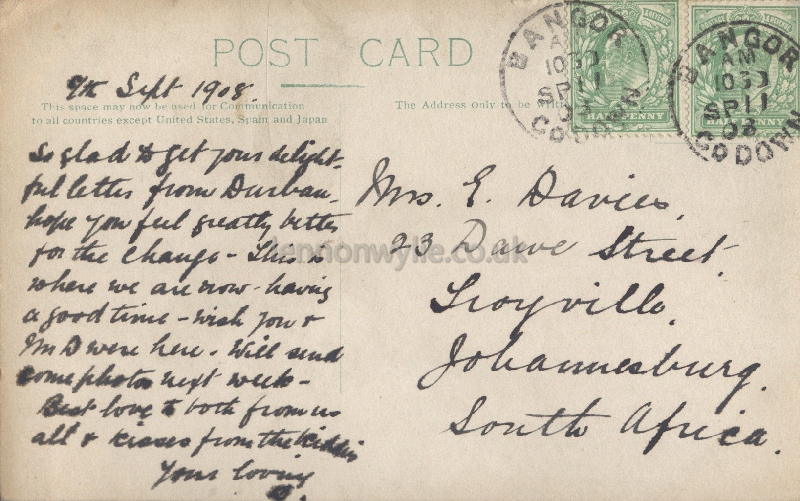 POST CARD
9th Sept 1908.
This space may now be used for Communication
to all countries except United States, Spain and Japan
The Address only to be
So glad to get your delight-
ful letter from Durban,
hope you feel greatly better
for the change - This is
where we are now - having
a good time - wish you &
Mr D were here. Will send
some photos next week -
Best love to both from us
all & kisses from the kiddies
Your loving
Mrs. E. Davies,
23 Dawe Street,
Troyville,
Johannesburg,
South Africa.
BANGOR
AM
1030
SP 11
08
CO DOWN
HALFPENNY
BANGOR
AM
1030
SP 11
08
CO DOWN
HALFPENNY
lennonwylie.co.uk